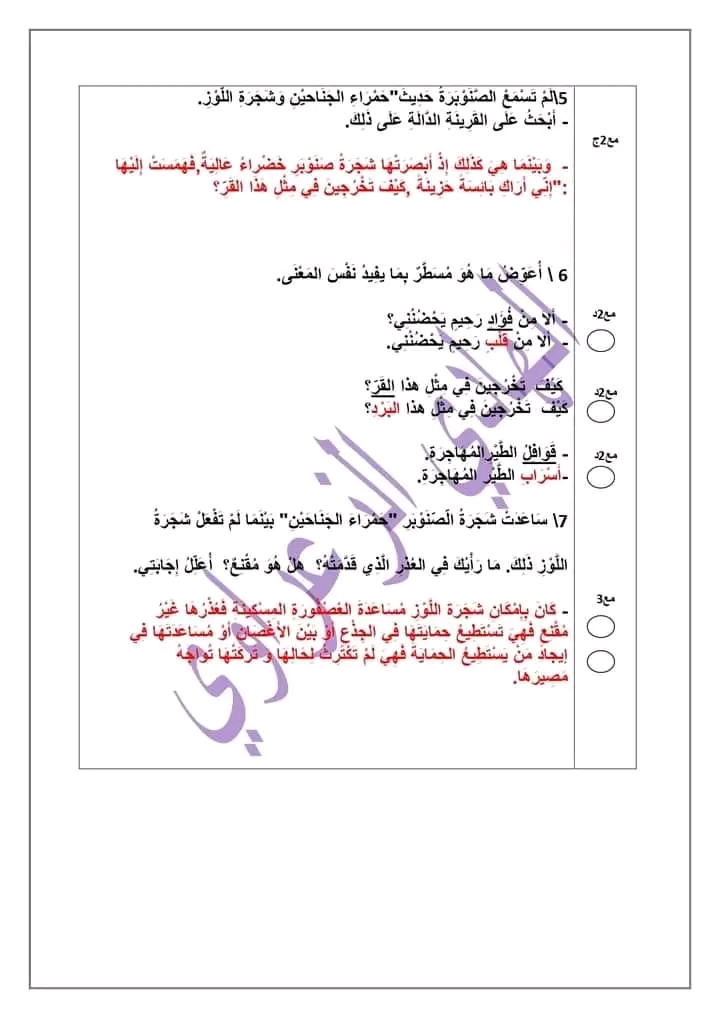 5\لَمْ تَسْمَعْ الصَّنَوْبَرَةُ حَدِيثَ"حَمْرَاءِ الجَنَاحَيْنِ وَشَجَرَةِ اللَّوْزِ.
- أَبْحَثُ عَلَى القَرِينَةِ الدَّالَةِ عَلَى ذَلِكَ.
مع2ج
- وَبَيْنَمَا هِيَ كَذَلِكَ إِذْ أَبْصَرَتْهَا شَجَرَةُ صَنَوْبَرِ خَضْرَاءُ عَالِيَةٌ,فَهَمَسَتْ إِلَيْهَا
:"إِنِّي أَرَاكِ بَائِسَةً حَزِينَةً ,كَيْفَ تَخْرُجِينَ فِي مِثْلِ هَذَا القَرِّ؟
6 \ أُعَوِّضُ مَا هُوَ مُسَطَّرٌ بِمَا يفِيدُ نَفْسَ المَعْنَى.
مع2د
- أَلا مِنْ فُؤَادٍ رَحِيمِ يَحْضُنُنِي؟
- أَلا مِنْ قَلْبٍ رَحِيمِ يَحْضُنُنِي.
مع2د
كَيْفَ تَخْرُجِينَ فِي مِثْلِ هذا القَرِّ؟
كَيْفَ تَخْرُجِينَ فِي مِثْلِ هذا البَرْدِ؟
مع2د
- قَوَافِلُ الطَّيْرِالمُهَاجِرَةِ.
-أَسْرَابِ الطَّيْرِ المُهَاجِرَةِ.
7\ سَاعَدَتْ شَجَرَةُ الصَّنَوْبَرِ "حَمْرَاءَ الجَنَاحَيْنِ" بَيْنَمَا لَمْ تَفْعَلْ شَجَرَةُ
اللَّوْزِ ذَلِكَ. مَا رَأْيُكَ فِي العُذْرِ الَّذِي قَدَّمَتْهُ؟ هَلْ هُوَ مُقْنِعٌ؟ أُعَلِّلُ إِجَابَتِي.
مع3
- كَانَ بِإِمْكَانِ شَجَرَةِ اللَّوْزِ مُسَاعَدَةَ العُصْفُورَةِ المِسْكِينَة فَعُذْرُهَا غَيْرُ
مُقْنِعٍ فَهِيَ تَسْتَطِيعُ حِمَايَتَهَا فِي الجِذْعِ أَوْ بَيْنَ الأَغْصَانِ أَوْ مُسَاعَدَتَهَا فِي
إِيجَادِ مَنْ يَسْتَطِيعُ الحِمَايَةَ فَهِيَ لَمْ تَكْتَرِثْ لِحَالِهَا وَ تَرَكَتْهَا تُوَاجِهُ
مَصِيرَهَا.
الهادي الزعراوي